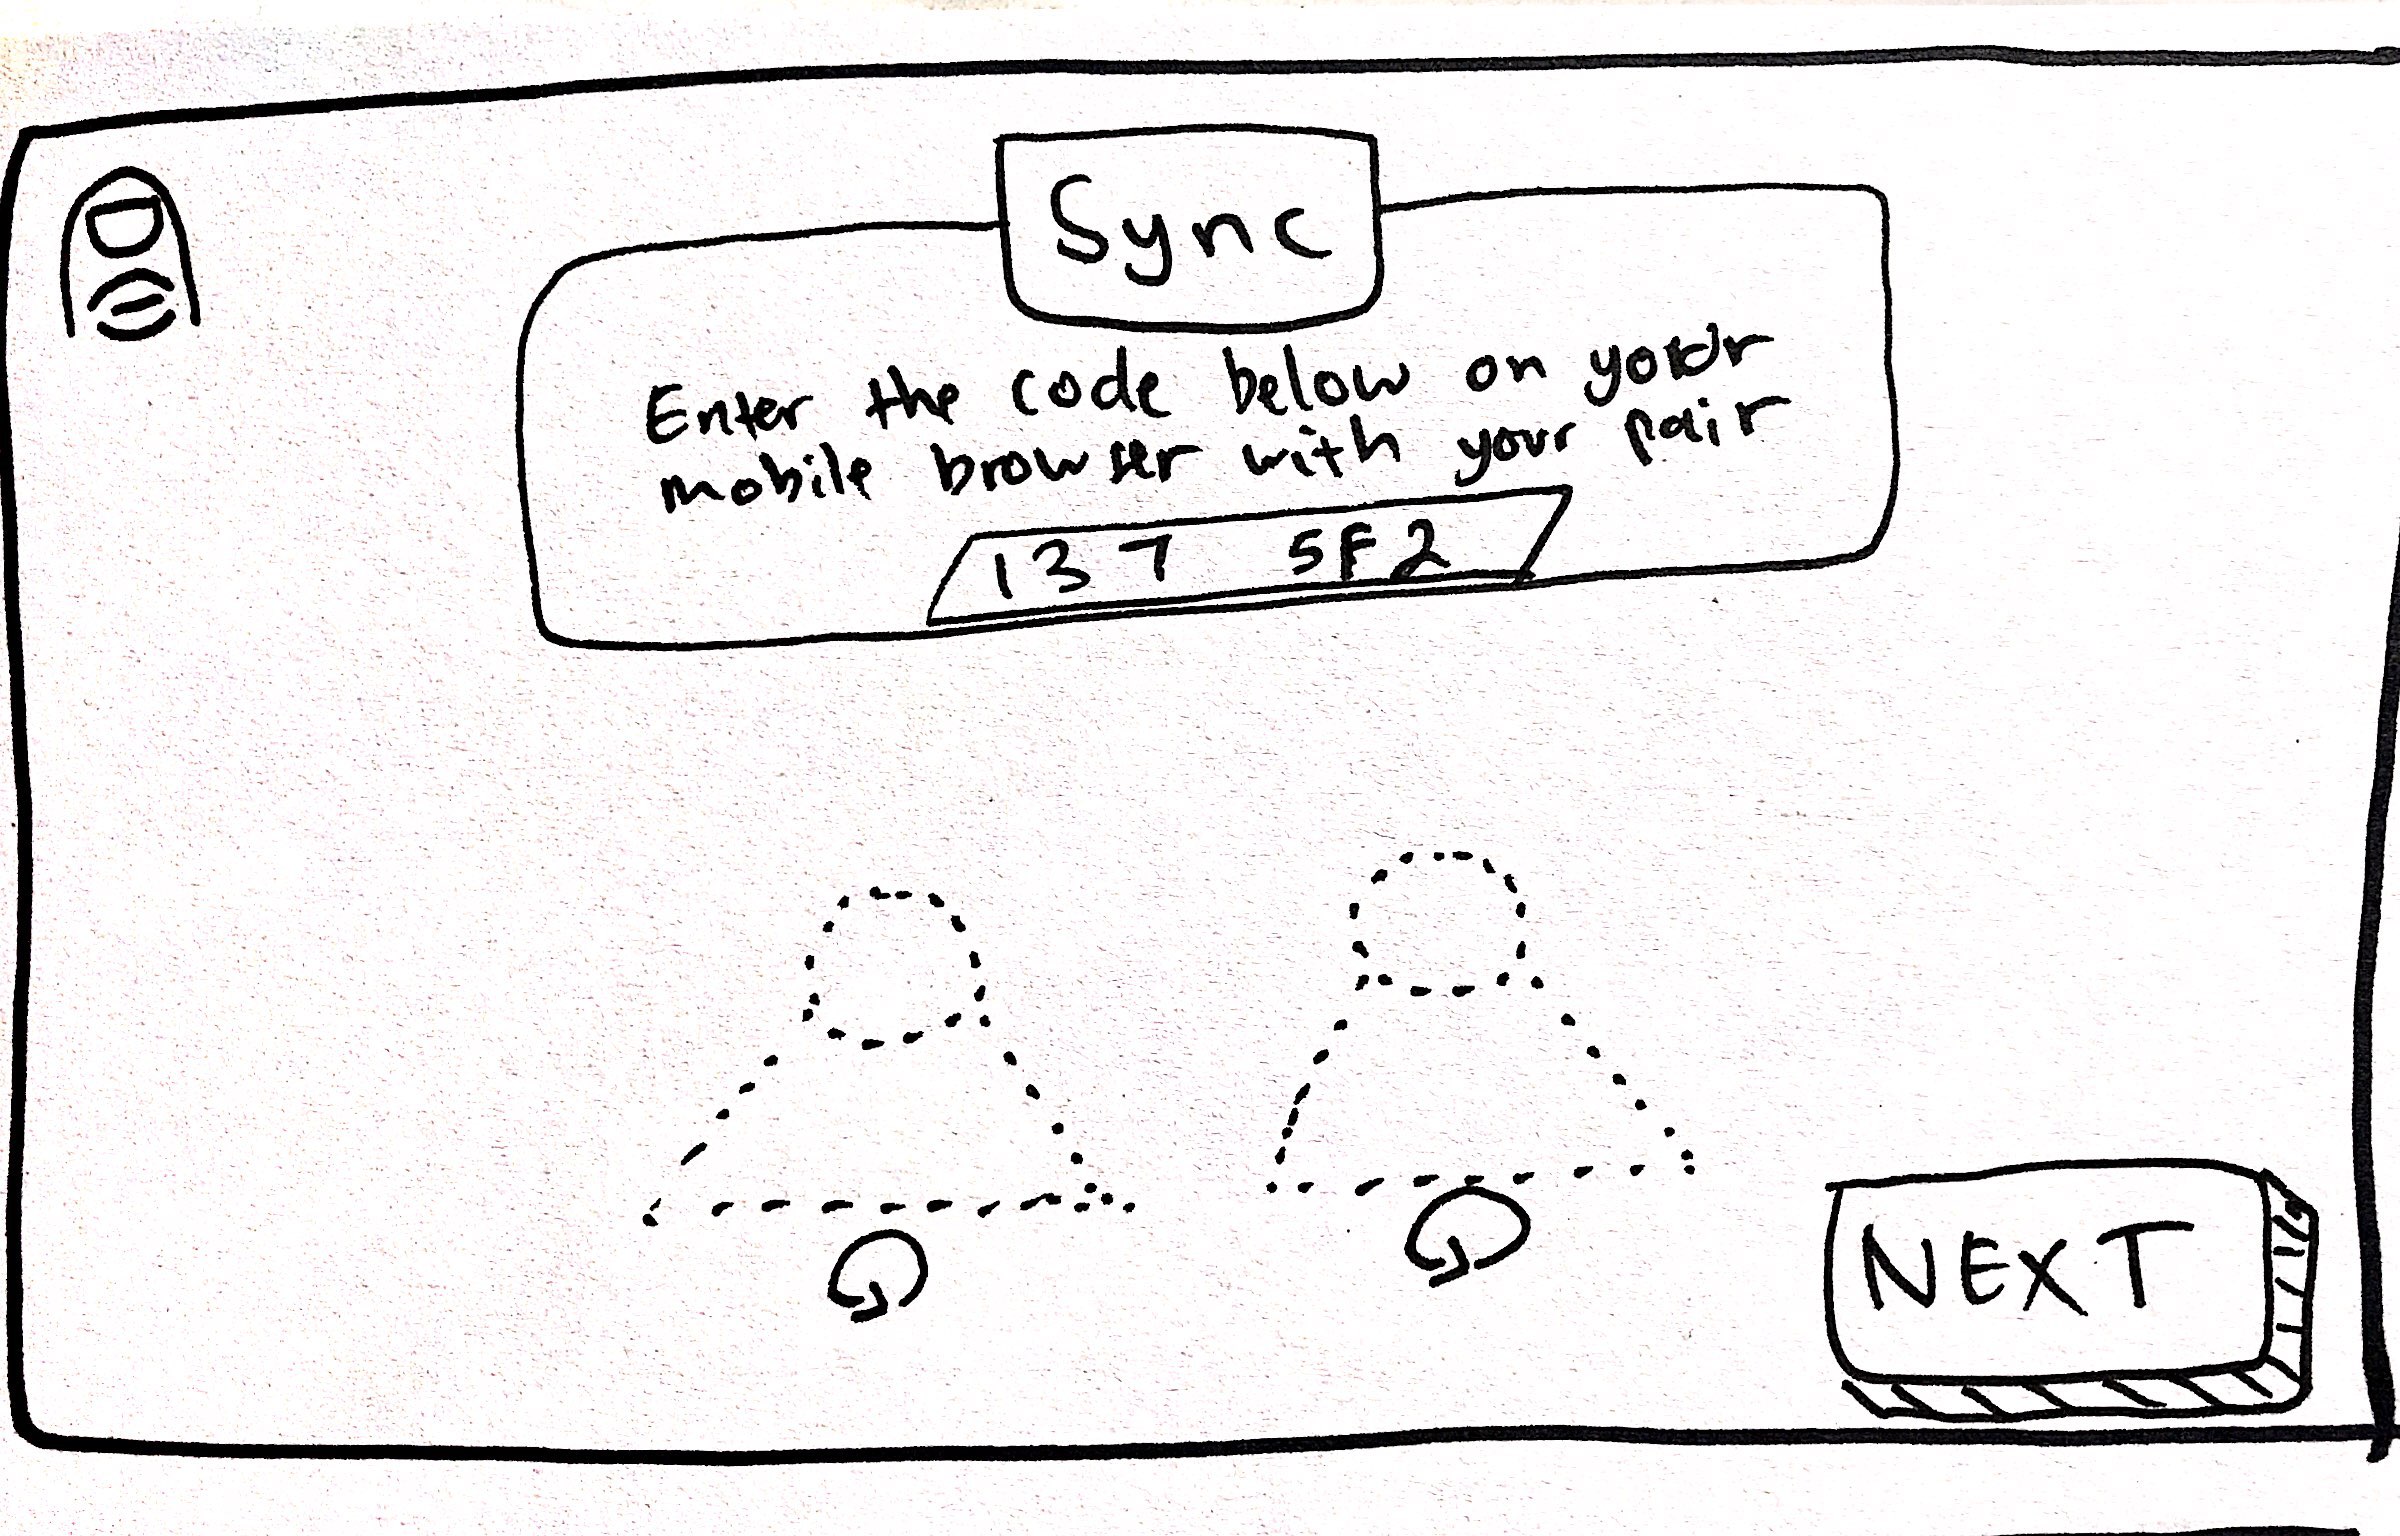 Sync
Enter the code below on your
mobile browser with your pair
137 5F2
NEXT